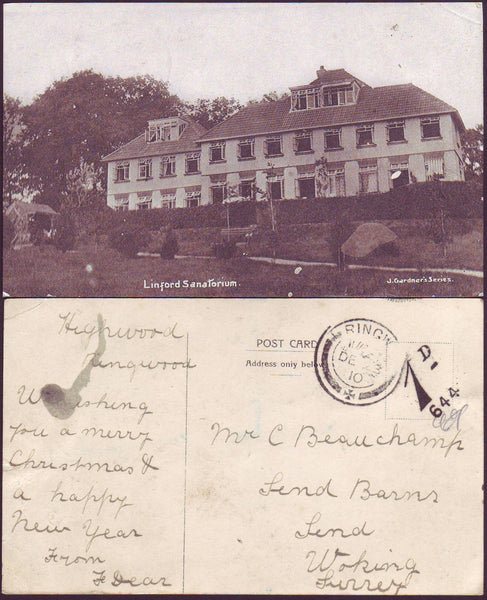 Linford Sanatorium.
J. Gardner's Series.
Highwood
Ringwood
Wishing
you a merry
Christmas &
a happy
New Year
From
F Dear
POST CARD
Address only below
RINGW
DE
10
D1
644
Mr C Beauchamp
Send Barns
Send
Woking
Surrey